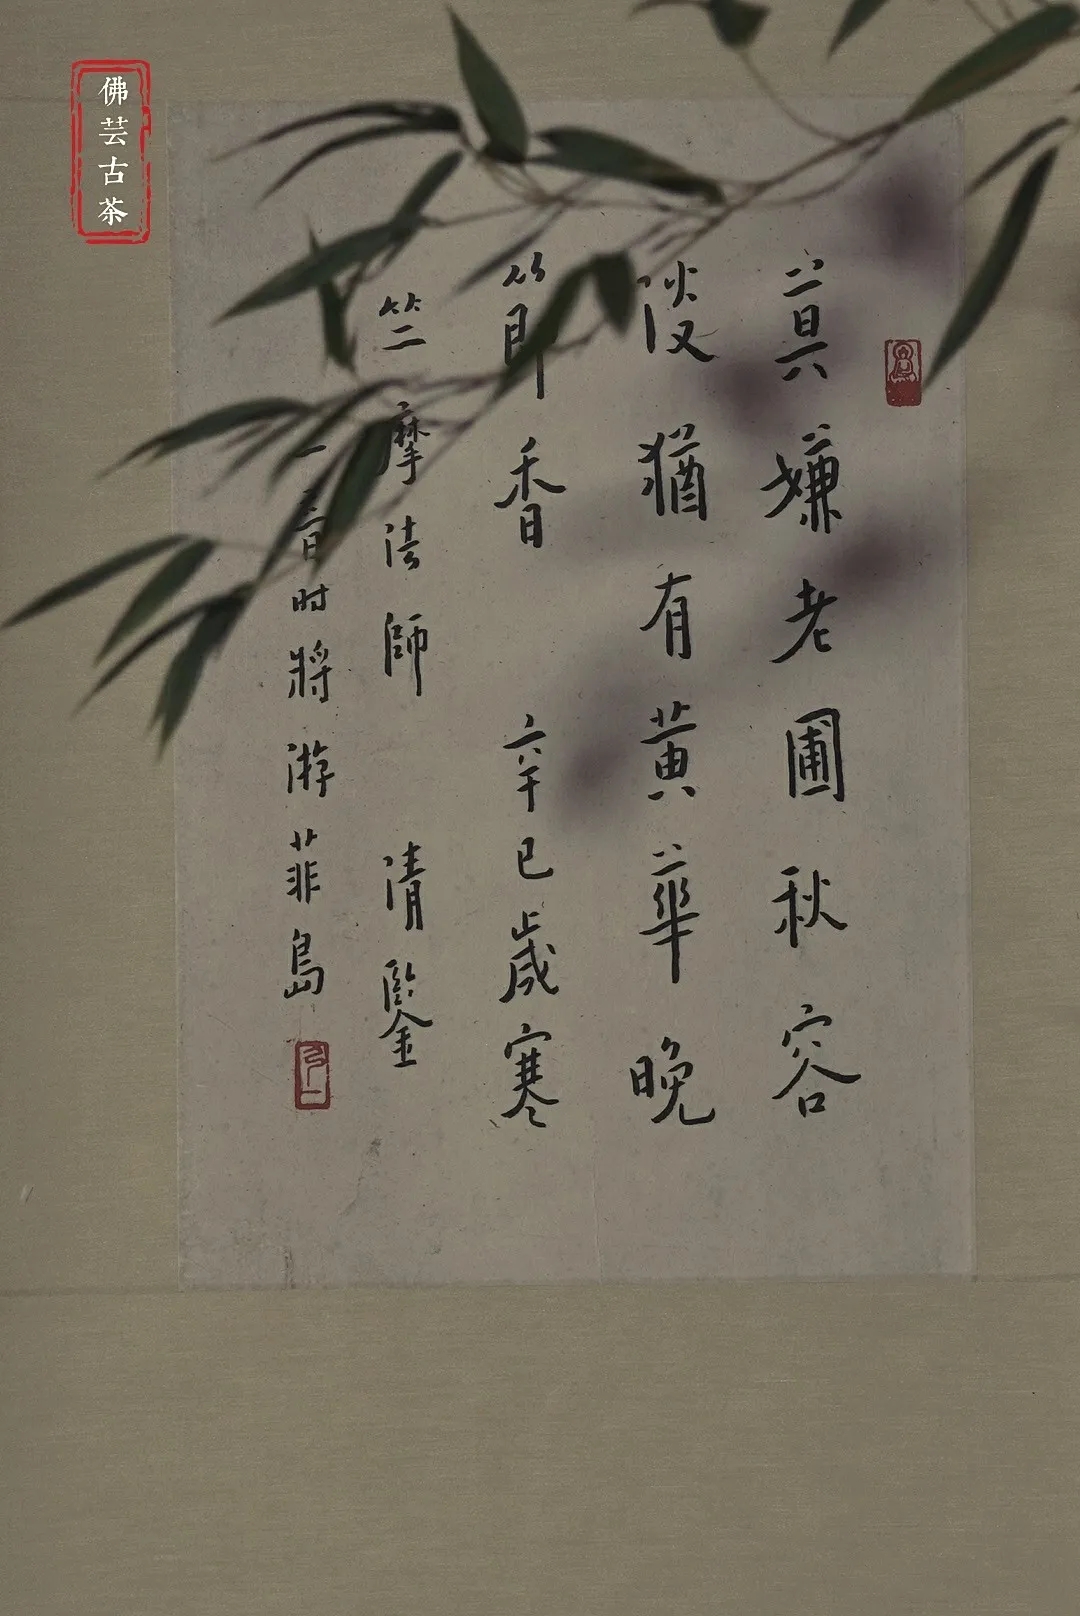 佛芸古茶
莫嫌老圃秋容
淡猶有黃華晚
節香 辛巳歲寒
竺摩法師 清鑒
一音时將游菲島